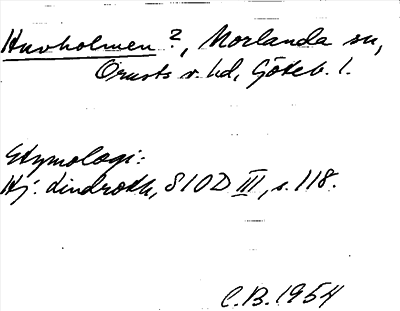 Huvholmen?, Morlanda sn,
Orusts v. hd, Göteb. l.
Etymologi:
Hj. Lindroth, SIOD III, s. 118.
C.B. 1954